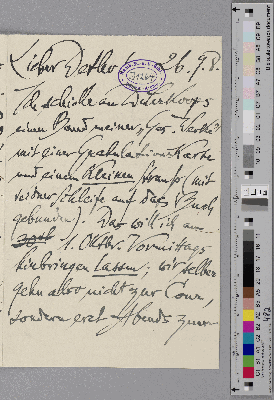 Lieber Detlev 26.9.8.
Ich schicke an
einen Band meiner Ges. Werke
mit einer Gratulations Karte
und einem kleinen Strauß (mit
seidner Schleife auf das Buch
gebunden). Das will ich am
1. Oktbr. Vormittags
hinbringen lassen; wir selber
gehn also nicht zur Cour,
sondern erst Abends zum